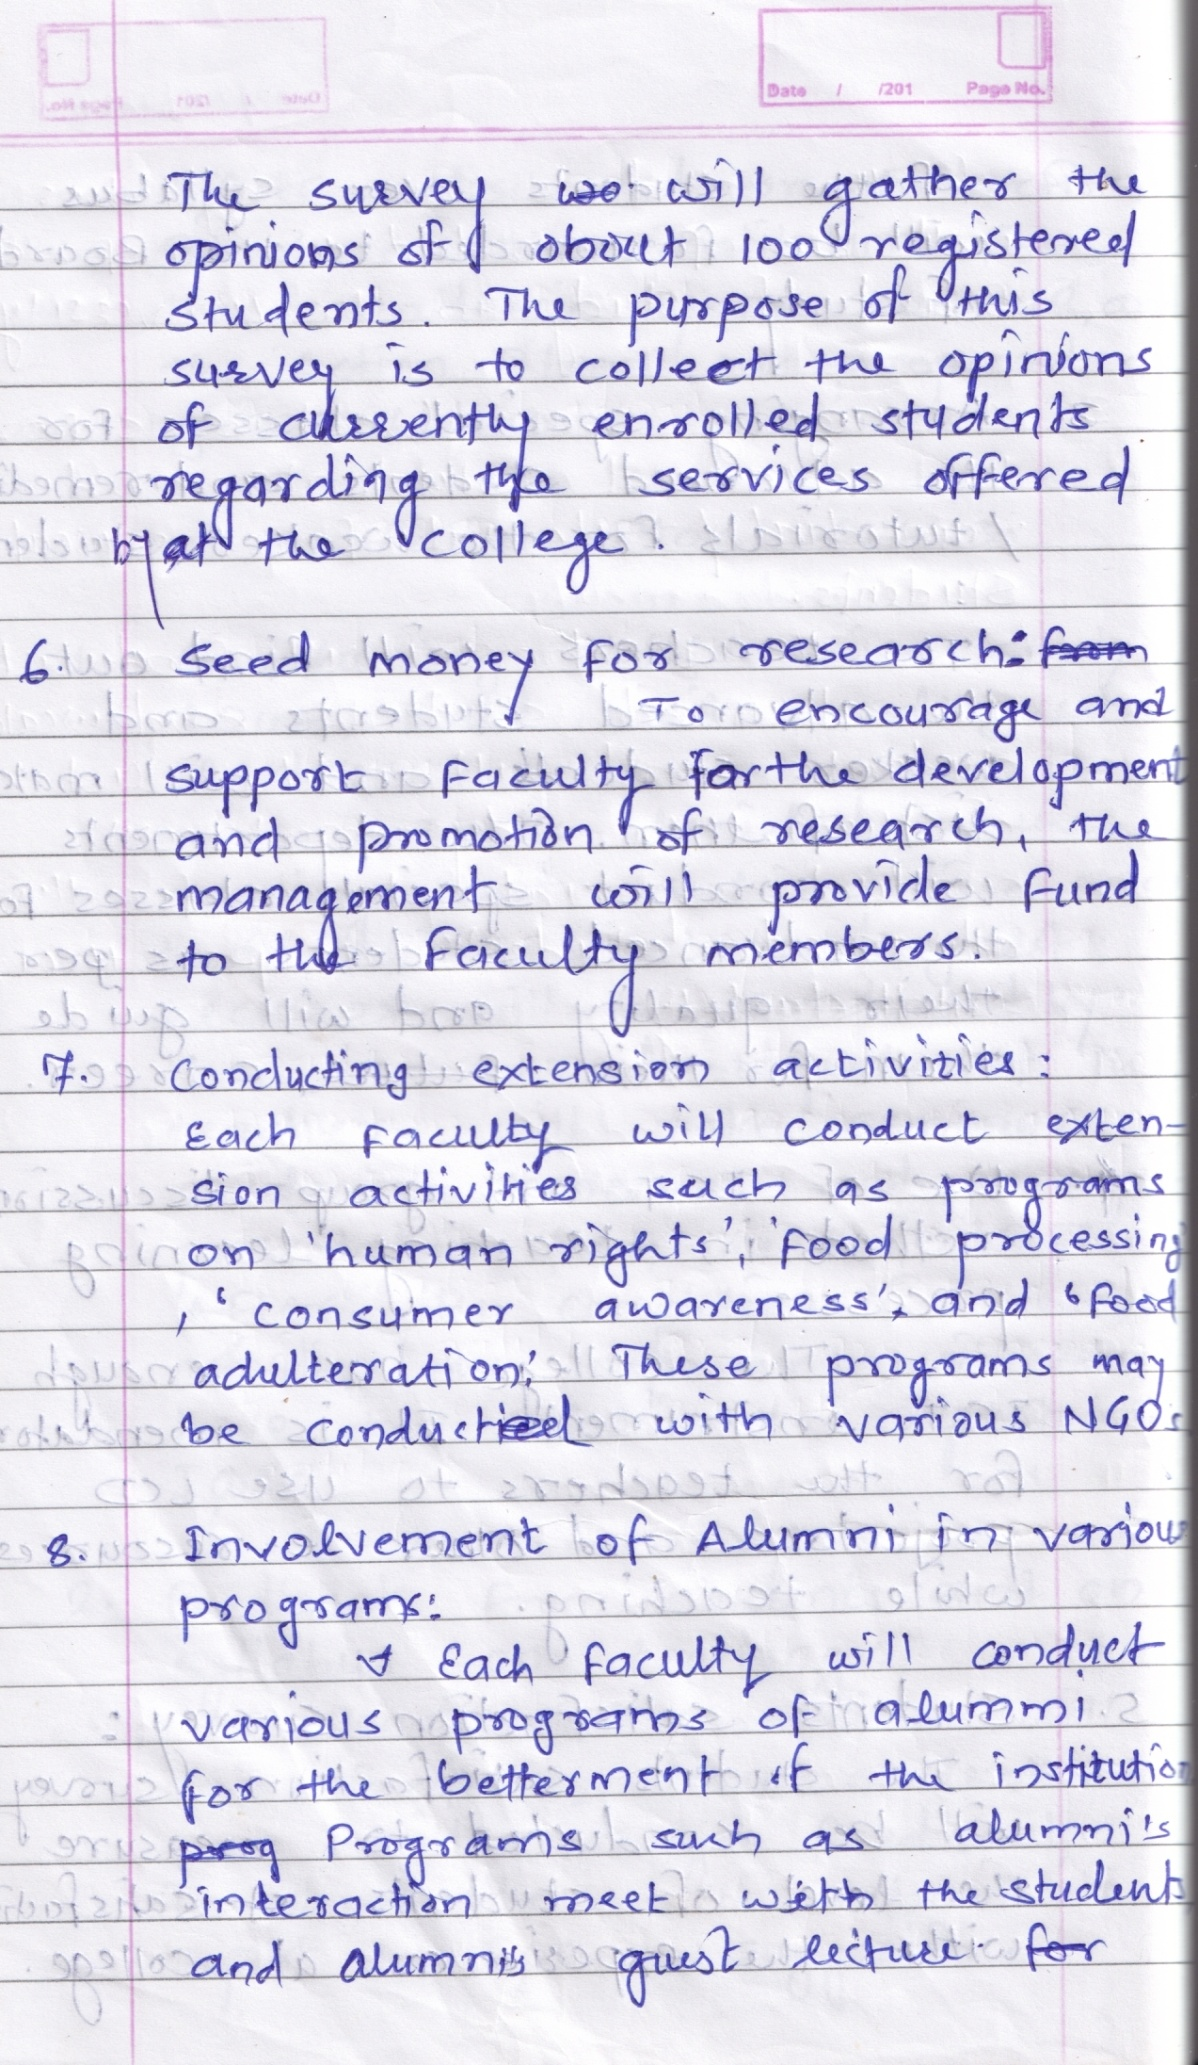 Date / /201 Page No.
The survey wo will gather the
opinions of about 100 registered
students. The purpose of this
survey is to collect the opinions
of currently enrolled students
regarding the services offered
by at the college.
6. Seed money for research: from
To encourage and
support faculty for the development
and promotion of research, the
management will provide fund
to the faculty members.
7. Conducting extension activities:
Each faculty will conduct exten-
sion activities such as programs
on 'human rights', 'food processing
, 'consumer awareness', and 'food
adulteration'. These programs may
be conducted with various NGOs
8. Involvement of Alumni in various
programs:
Each faculty will conduct
various programs of alummi
for the betterment of the institution
prog Programs such as alumni's
interaction meet with the students
and alumni's guest lecture for